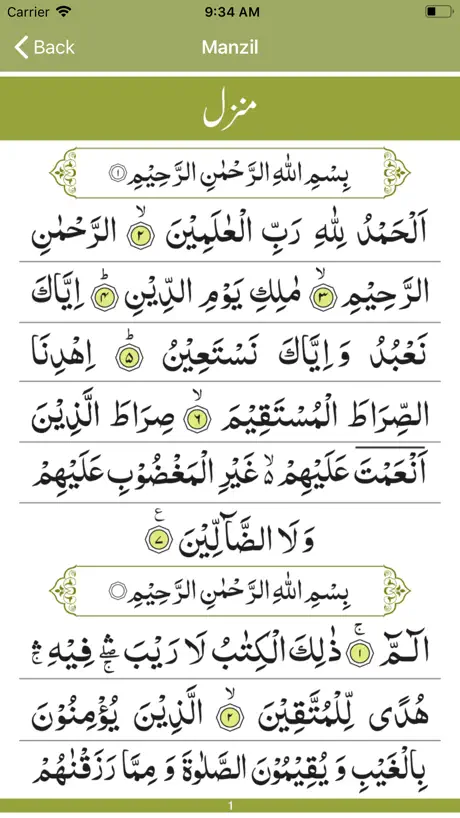 Carrier 9:34 AM
Back Manzil
منزل
بِسْمِ اللهِ الرَّحْمٰنِ الرَّحِيْمِ ۝١
اَلْحَمْدُ لِلّٰهِ رَبِّ الْعٰلَمِيْنَ ۙ۝٢ الرَّحْمٰنِ
الرَّحِيْمِ ۙ۝٣ مٰلِكِ يَوْمِ الدِّيْنِ ؕ۝۴ اِيَّاكَ
نَعْبُدُ وَ اِيَّاكَ نَسْتَعِيْنُ ؕ۝۵ اِهْدِنَا
الصِّرَاطَ الْمُسْتَقِيْمَ ۙ۝۶ صِرَاطَ الَّذِيْنَ
اَنْعَمْتَ عَلَيْهِمْ ۙ۬ غَيْرِ الْمَغْضُوْبِ عَلَيْهِمْ
وَ لَا الضَّآلِّيْنَ ۝٧ ع
بِسْمِ اللهِ الرَّحْمٰنِ الرَّحِيْمِ ۝
الٓـمّٓ ۚ۝١ ذٰلِكَ الْكِتٰبُ لَا رَيْبَ ۛۖۚ فِيْهِ ۛۚ
هُدًى لِّلْمُتَّقِيْنَ ۙ۝٢ الَّذِيْنَ يُؤْمِنُوْنَ
بِالْغَيْبِ وَ يُقِيْمُوْنَ الصَّلٰوةَ وَ مِمَّا رَزَقْنٰهُمْ
1